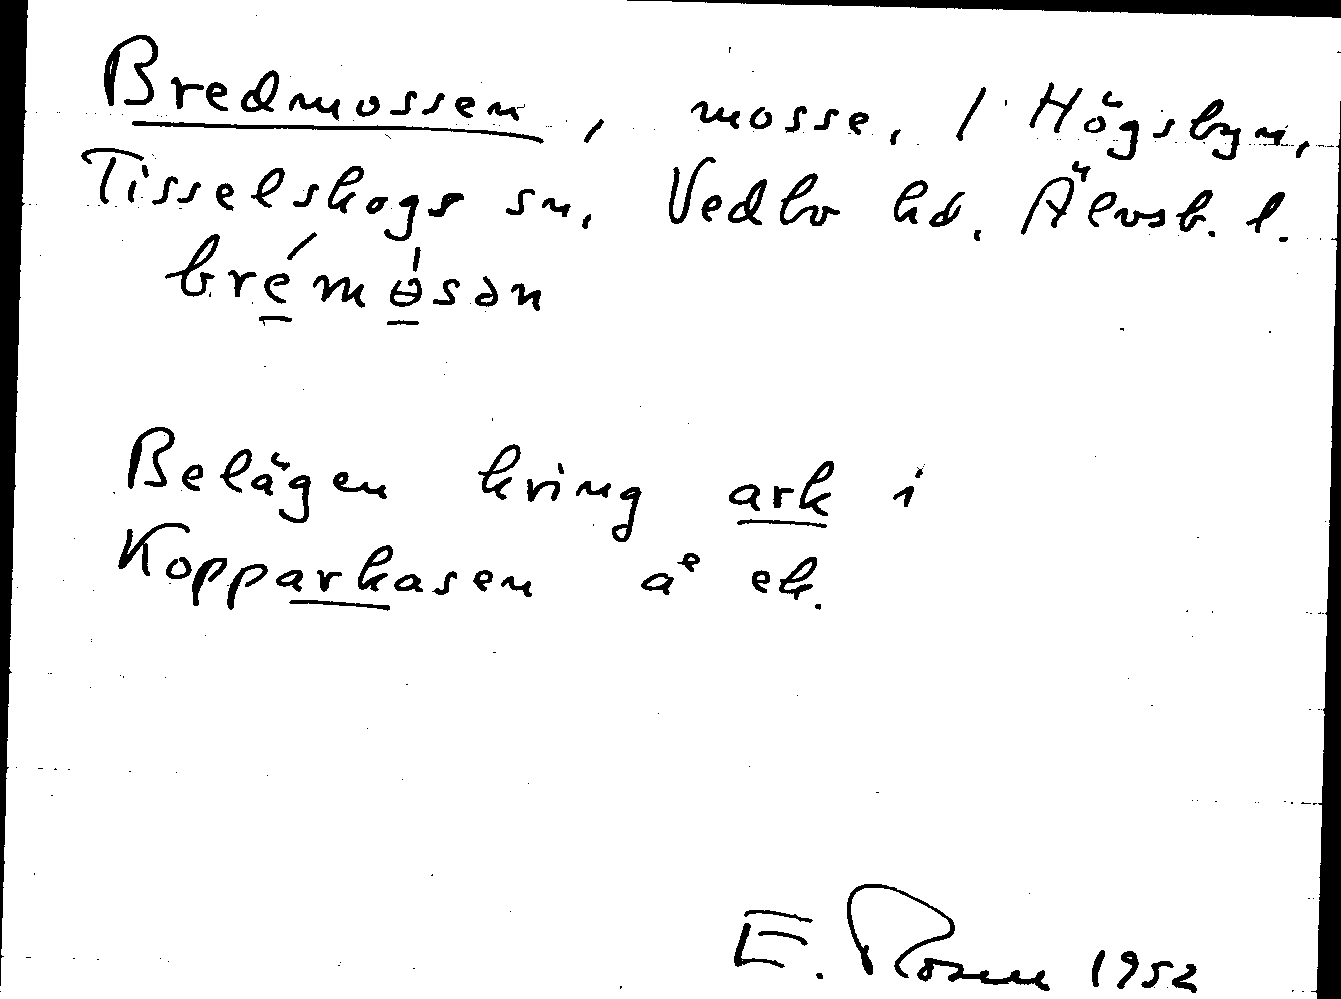 Bredmossen, mosse, / Högsbyn,
Tisselskogs sn, Vedbo hd. Älvsb. l.
bre̲´mɵ̲̀sən
Belägen kring ark i
Kopparkasen åe ek.
E. Rosen 1952